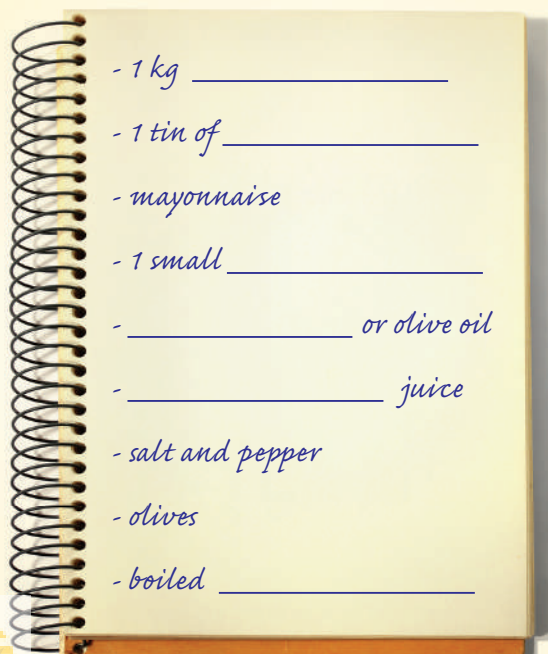 - 1 kg ____________
- 1 tin of ____________
- mayonnaise
- 1 small ____________
- ____________ or olive oil
- ____________ juice
- salt and pepper
- olives
- boiled ____________